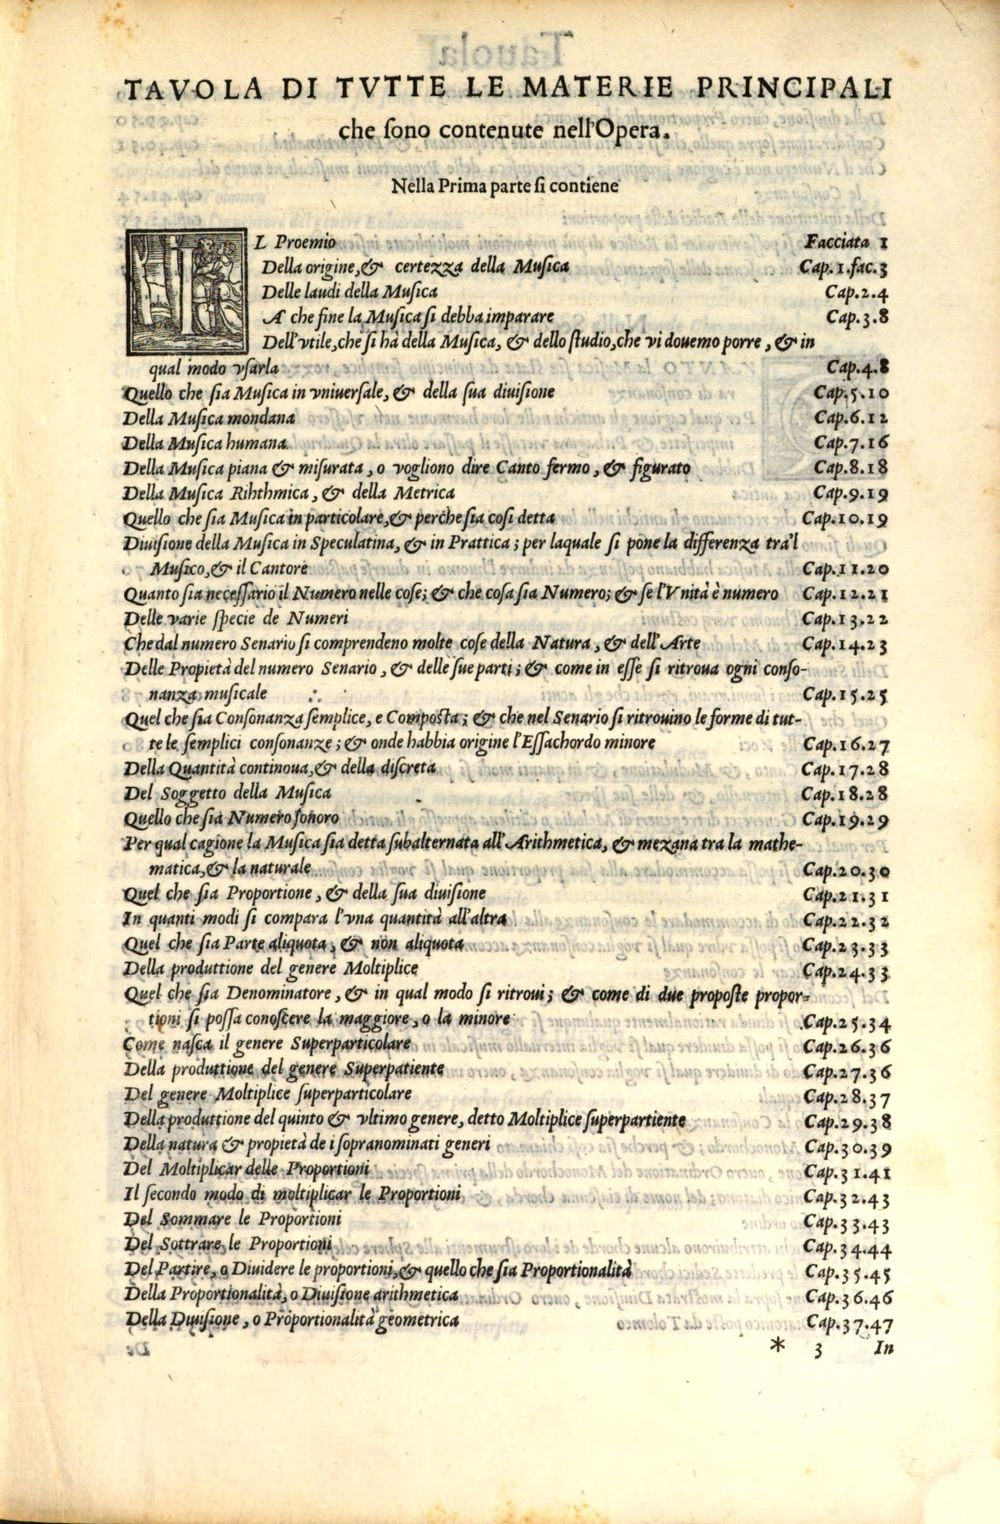 TAVOLA DI TVTTE LE MATERIE PRINCIPALI
che ſono contenute nell'Opera.
Nella Prima parte ſi contiene
IL Proemio Facciata 1
Della origine, & certezza della Muſica Cap.1.fac.3
Delle laudi della Muſica Cap.2.4
A che fine la Muſica ſi debba imparare Cap.3.8
Dell'vtile, che ſi hà della Muſica, & dello ſtudio, che vi douemo porre, & in
qual modo vſarla Cap.4.8
Quello che ſia Muſica in vniuerſale, & della ſua diuiſione Cap.5.10
Della Muſica mondana Cap.6.12
Della Muſica humana Cap.7.16
Della Muſica piana & miſurata, o vogliono dire Canto fermo, & figurato Cap.8.18
Della Muſica Rihthmica, & della Metrica Cap.9.19
Quello che ſia Muſica in particolare, & perche ſia coſi detta Cap.10.19
Diuiſione della Muſica in Speculatiua, & in Prattica; per laquale ſi pone la differenza tra'l
Muſico, & il Cantore Cap.11.20
Quanto ſia neceſſario il Numero nelle coſe; & che coſa ſia Numero; & ſe l'Vnità è numero Cap.12.21
Delle varie ſpecie de Numeri Cap.13.22
Che dal numero Senario ſi comprendeno molte coſe della Natura, & dell'Arte Cap.14.23
Delle Propietà del numero Senario, & delle ſue parti; & come in eſſe ſi ritroua ogni conſo-
nanza muſicale Cap.15.25
Quel che ſia Conſonanza ſemplice, e Compoſta; & che nel Senario ſi ritrouino le forme di tut-
te le ſemplici conſonanze; & onde habbia origine l'Eſſachordo minore Cap.16.27
Della Quantità continoua, & della diſcreta Cap.17.28
Del Soggetto della Muſica Cap.18.28
Quello che ſia Numero ſonoro Cap.19.29
Per qual cagione la Muſica ſia detta ſubalternata all'Arithmetica, & mezana tra la mathe-
matica, & la naturale Cap.20.30
Quel che ſia Proportione, & della ſua diuiſione Cap.21.31
In quanti modi ſi compara l'vna quantità all'altra Cap.22.32
Quel che ſia Parte aliquota, & non aliquota Cap.23.33
Della produttione del genere Moltiplice Cap.24.33
Quel che ſia Denominatore, & in qual modo ſi ritroui; & come di due propoſte propor-
tioni ſi poſſa conoſcere la maggiore, o la minore Cap.25.34
Come naſca il genere Superparticolare Cap.26.36
Della produttione del genere Superpatiente Cap.27.36
Del genere Moltiplice ſuperparticolare Cap.28.37
Della produttione del quinto & vltimo genere, detto Moltiplice ſuperpartiente Cap.29.38
Della natura & propietà de i ſopranominati generi Cap.30.39
Del Moltiplicar delle Proportioni Cap.31.41
Il ſecondo modo di moltiplicar le Proportioni Cap.32.43
Del Sommare le Proportioni Cap.33.43
Del Sottrare le Proportioni Cap.34.44
Del Partire, o Diuidere le proportioni, & quello che ſia Proportionalità Cap.35.45
Della Proportionalità, o Diuiſione arithmetica Cap.36.46
Della Diuiſione, o Proportionalità geometrica Cap.37.47
* 3 In